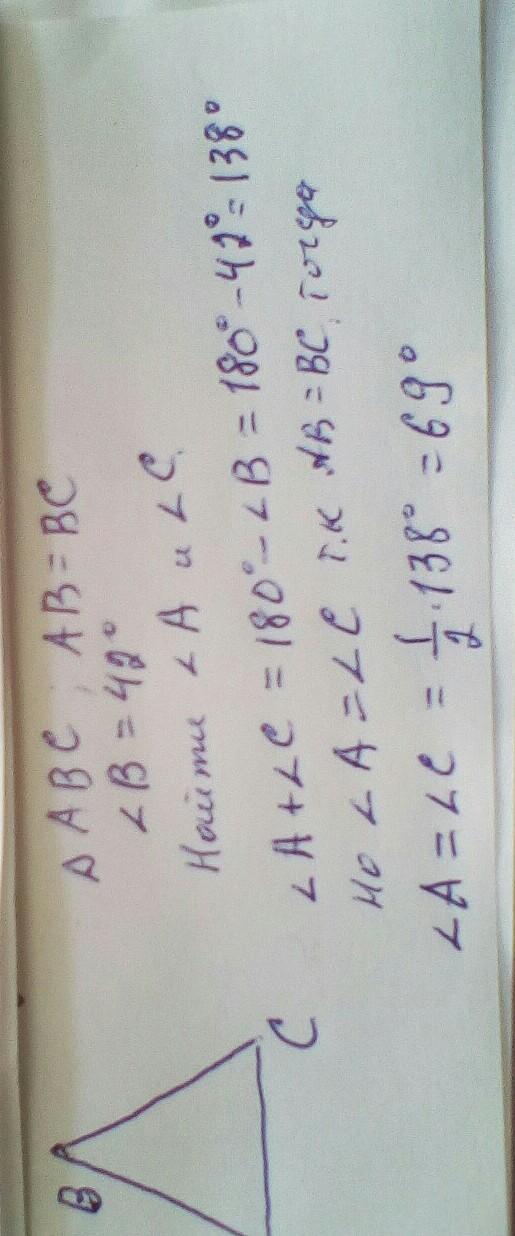 Δ ABC, AB = BC
∠B = 42°
Найти ∠A и ∠C.
∠A + ∠C = 180° - ∠B = 180° - 42° = 138°
Но ∠A = ∠C т.к. AB = BC, тогда
∠A = ∠C = 1/2 · 138° = 69°
B
C